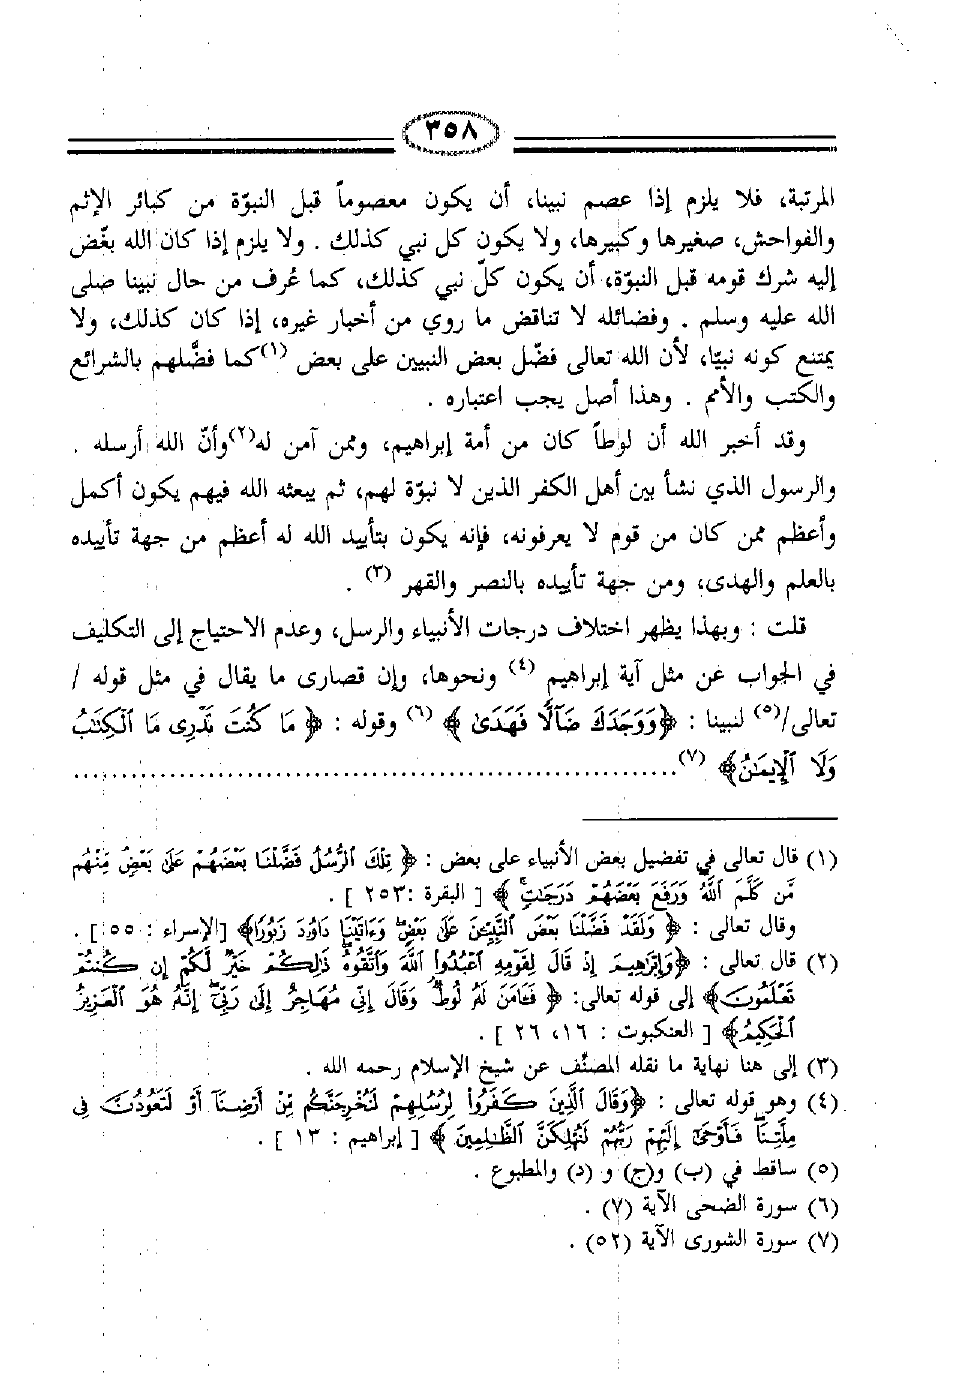 ٣٥٨
المرتبة، فلا يلزم إذا عصم نبينا، أن يكون معصوماً قبل النبوّة من كبائر الإثم
والفواحش، صغيرها وكبيرها، ولا يكون كل نبي كذلك . ولا يلزم إذا كان الله بغّض
إليه شرك قومه قبل النبوّة، أن يكون كلّ نبي كذلك، كما عُرف من حال نبينا صلى
الله عليه وسلم . وفضائله لا تناقض ما روي من أخبار غيره، إذا كان كذلك، ولا
يمتنع كونه نبيًا، لأن الله تعالى فضّل بعض النبيين على بعض (١) كما فضَّلهم بالشرائع
والكتب والأمم . وهذا أصل يجب اعتباره .
وقد أخبر الله أن لوطاً كان من أمة إبراهيم، وممن آمن له(٢) وأنّ الله أرسله .
والرسول الذي نشأ بين أهل الكفر الذين لا نبوّة لهم، ثم يبعثه الله فيهم يكون أكمل
وأعظم ممن كان من قوم لا يعرفونه، فإنه يكون بتأييد الله له أعظم من جهة تأييده
بالعلم والهدى، ومن جهة تأييده بالنصر والقهر (٣) .
قلت : وبهذا يظهر اختلاف درجات الأنبياء والرسل، وعدم الاحتياج إلى التكليف
في الجواب عن مثل آية إبراهيم (٤) ونحوها، وإن قصارى ما يقال في مثل قوله /
تعالى/(٥) لنبينا : ﴿وَوَجَدَكَ ضَآلًّا فَهَدَىٰ ﴾ (٦) وقوله : ﴿ مَا كُنتَ تَدْرِى مَا ٱلْكِتَٰبُ
وَلَا ٱلْإِيمَٰنُ﴾ (٧)............................................................
(١) قال تعالى في تفضيل بعض الأنبياء على بعض : ﴿ تِلْكَ ٱلرُّسُلُ فَضَّلْنَا بَعْضَهُمْ عَلَىٰ بَعْضٍ مِّنْهُم
مَّن كَلَّمَ ٱللَّهُ وَرَفَعَ بَعْضَهُمْ دَرَجَٰتٍ ﴾ [ البقرة :٢٥٣ ] .
وقال تعالى : ﴿ وَلَقَدْ فَضَّلْنَا بَعْضَ ٱلنَّبِيِّـۧنَ عَلَىٰ بَعْضٍ وَءَاتَيْنَا دَاوُۥدَ زَبُورًا﴾ [الإسراء : ٥٥] .
(٢) قال تعالى : ﴿وَإِبْرَٰهِيمَ إِذْ قَالَ لِقَوْمِهِ ٱعْبُدُوا۟ ٱللَّهَ وَٱتَّقُوهُ ذَٰلِكُمْ خَيْرٌ لَّكُمْ إِن كُنتُمْ
تَعْلَمُونَ﴾ إلى قوله تعالى: ﴿ فَـَٔامَنَ لَهُۥ لُوطٌ وَقَالَ إِنِّى مُهَاجِرٌ إِلَىٰ رَبِّىٓ إِنَّهُۥ هُوَ ٱلْعَزِيزُ
ٱلْحَكِيمُ﴾ [ العنكبوت : ١٦، ٢٦ ] .
(٣) إلى هنا نهاية ما نقله المصنّف عن شيخ الإسلام رحمه الله .
(٤) وهو قوله تعالى : ﴿وَقَالَ ٱلَّذِينَ كَفَرُوا۟ لِرُسُلِهِمْ لَنُخْرِجَنَّكُم مِّنْ أَرْضِنَآ أَوْ لَتَعُودُنَّ فِى
مِلَّتِنَا فَأَوْحَىٰٓ إِلَيْهِمْ رَبُّهُمْ لَنُهْلِكَنَّ ٱلظَّٰلِمِينَ ﴾ [ إبراهيم : ١٣ ] .
(٥) ساقط في (ب) و(ج) و (د) والمطبوع .
(٦) سورة الضحى الآية (٧) .
(٧) سورة الشورى الآية (٥٢) .